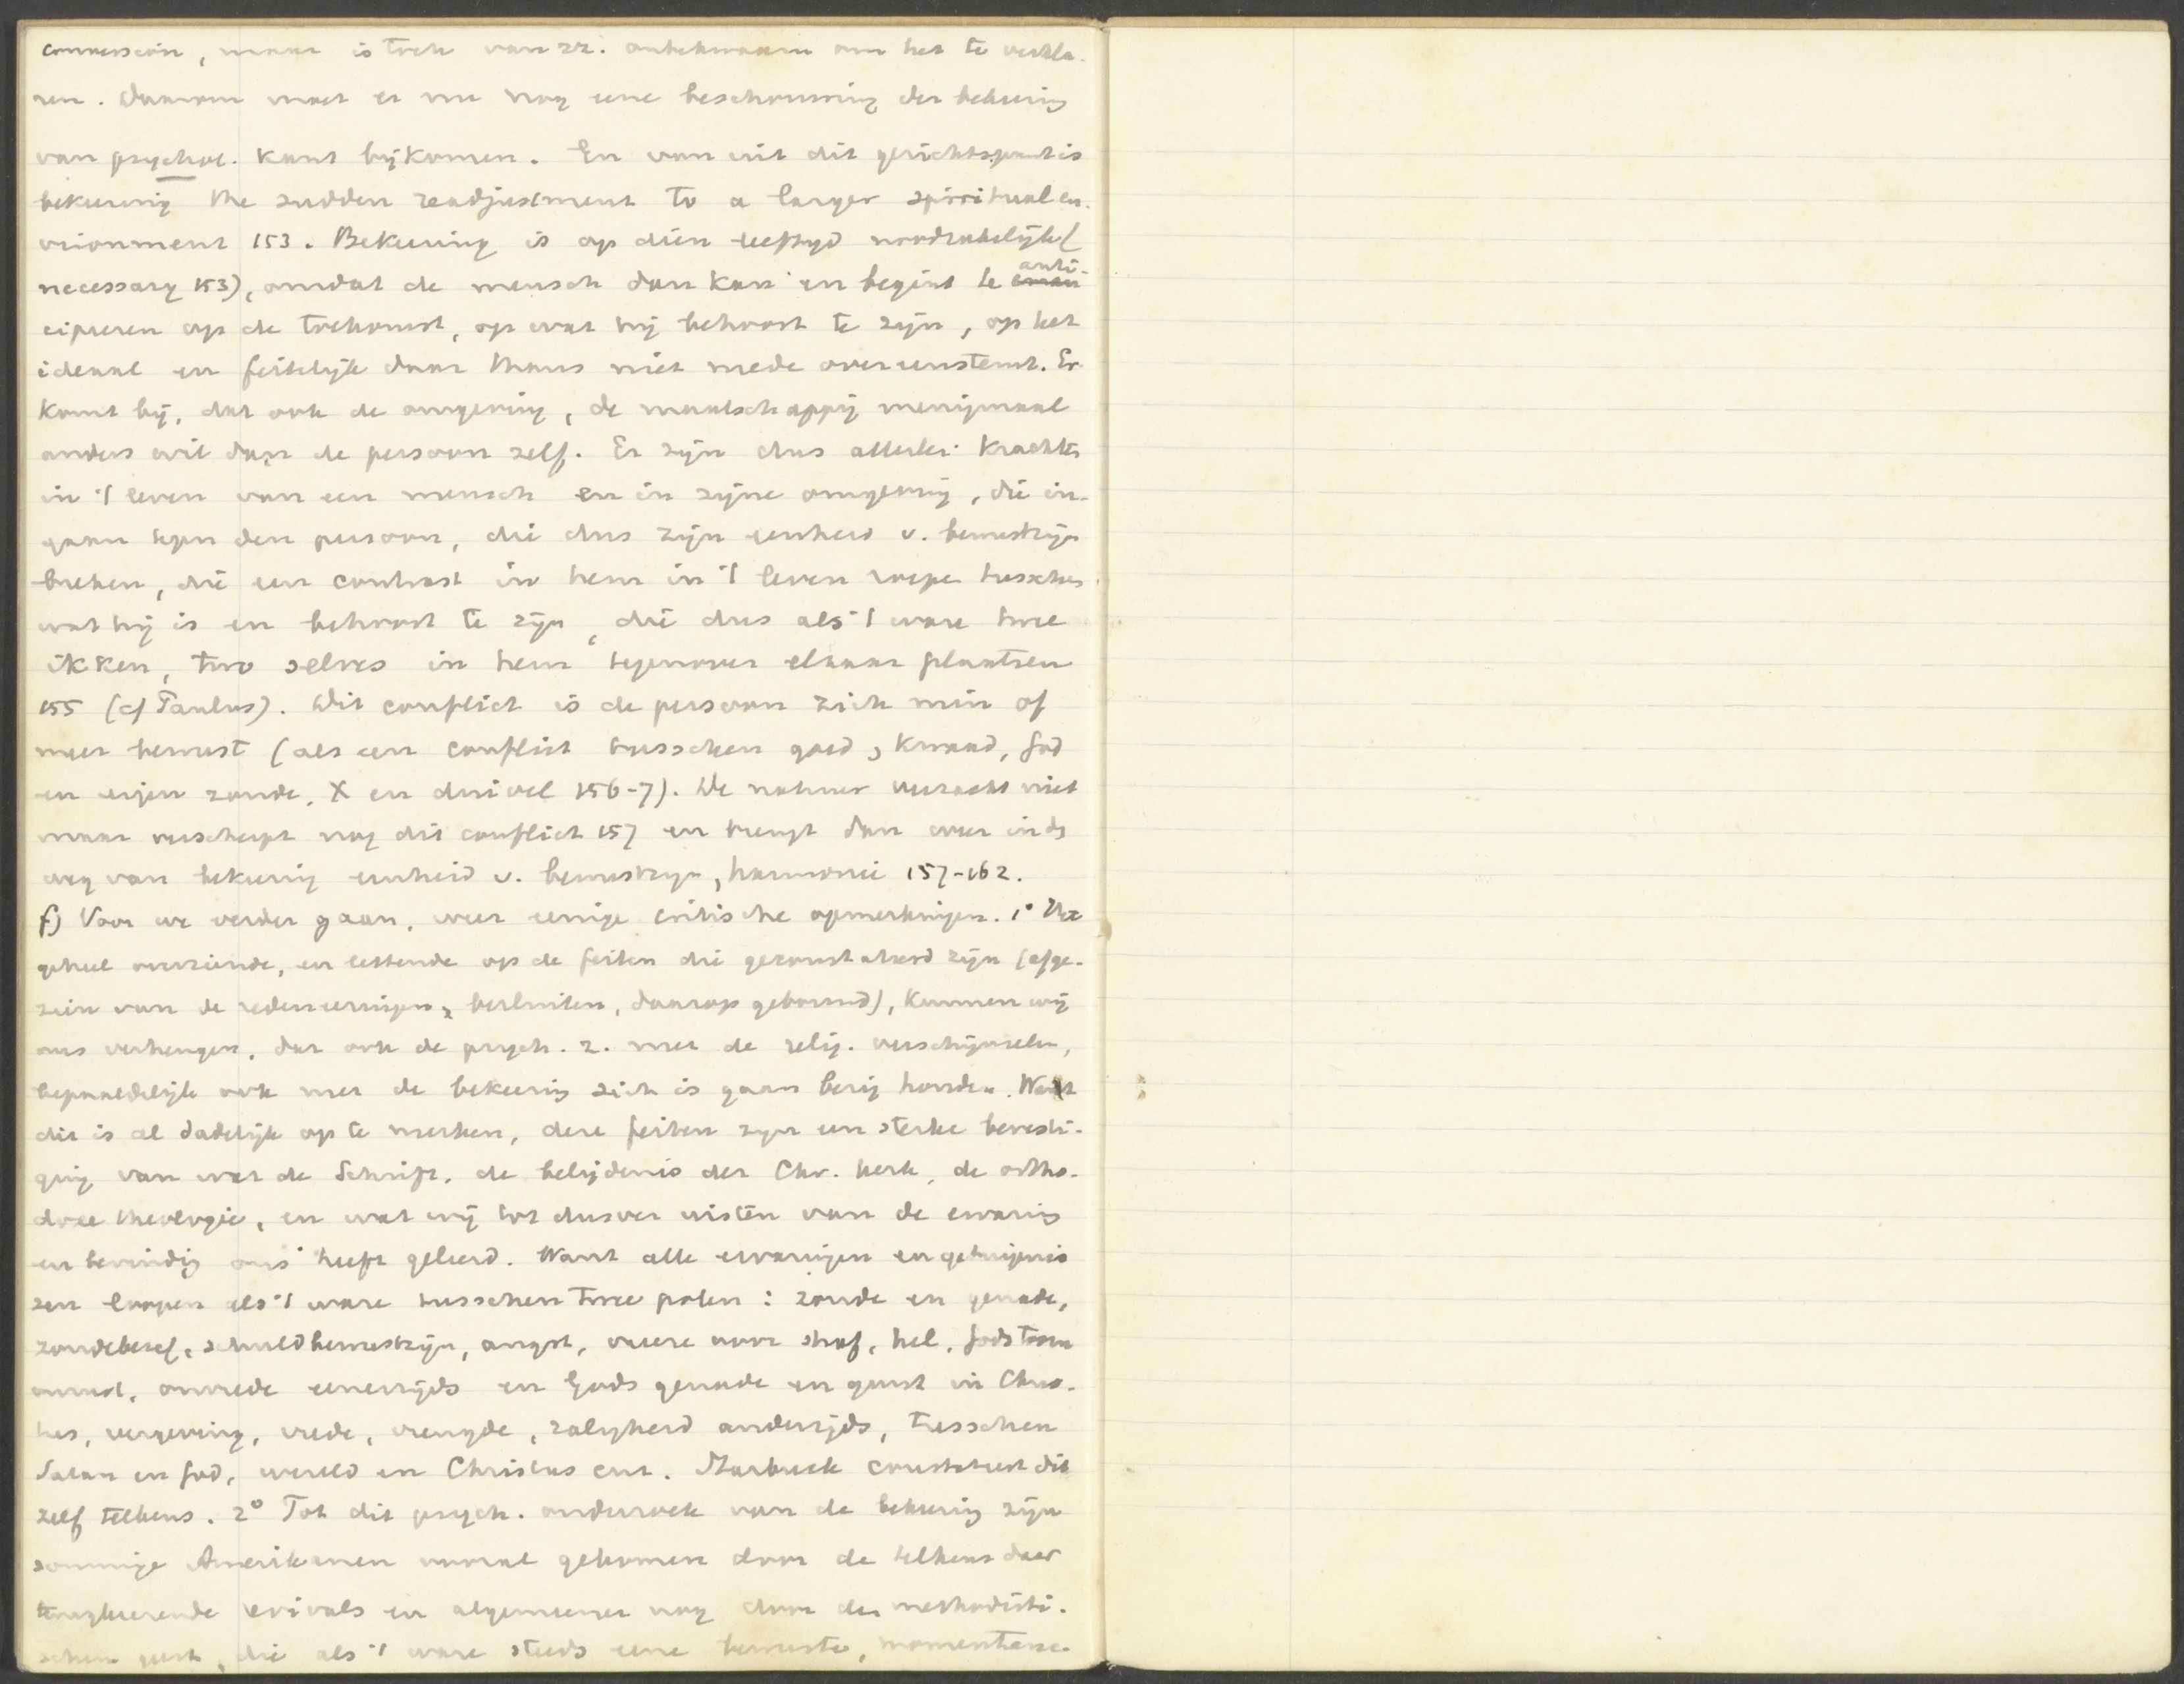 conversion, maar is toch van zz. onbekwaam om het te verkla-
ren. Daarom moet er nu nog eene beschouwing der bekeering
van psychol. kant bijkomen. En van uit dit gezichtspunt is
bekeering the sudden readjustment to a larger spiritual en-
vironment 153. Bekeering is op dien leeftijd noodzakelijk (
necessary 153), omdat de mensch dan kan en begint te anti-
cipeeren op de toekomst, op wat hij behoort te zijn, op het
ideaal en feitelijk daar thans niet mede overeenstemt. Er
komt bij, dat ook de omgeving, de maatschappij menigmaal
anders wil dan de persoon zelf. Er zijn dus allerlei krachten
in 't leven van een mensch en in zijne omgeving, die in-
gaan tegen den persoon, die dus zijn eenheid v. bewustzijn
breken, die een contrast in hem in 't leven roepen tusschen
wat hij is en behoort te zijn, die dus als 't ware twee
ikken, two selves in hem tegenover elkaar plaatsen
155 (cf Paulus). Dit conflict is de persoon zich min of
meer bewust (als een conflict tusschen goed, kwaad, God
en eigen zonde, X en duivel 156-7). De natuur veroorzaakt niet
maar verscherpt nog dit conflict 157 en brengt dan weer in ds
weg van bekeering eenheid v. bewustzijn, harmonie 157-162.
f) Voor we verder gaan, weer eenige critische opmerkingen. 1° Het
geheel overziende, en lettende op de feiten die geconstateerd zijn (afge-
zien van de redeneeringen, besluiten, daarop gebouwd), kunnen wij
ons verheugen, dat ook de psych. z. met de relig. verschijnselen,
bepaaldelijk ook met de bekeering zich is gaan bezig houden. Want
dit is al dadelijk op te merken, deze feiten zijn een sterke bevesti-
ging van wat de Schrift, de belijdenis der Chr. kerk, de ortho-
doxe theologie, en wat wij tot dusver wisten van de ervaring
en bevinding ons heeft geleerd. Want alle ervaringen en getuigenis
sen loopen als 't ware tusschen twee polen: zonde en genade,
zondebesef, schuldbewustzijn, angst, vreeze voor straf, hel, Gods toorn
onrust, onvrede eenerzijds en Gods genade en gunst in Chris-
tus, vergeving, vrede, vreugde, zaligheid anderzijds, tusschen
Satan en God, wereld en Christus enz. Starbuck constateert dit
zelf telkens. 2° Tot dit psych. onderzoek van de bekeering zijn
sommige Amerikanen vooral gekomen door de telkens daar
terugkeerende revivals en algemeener nog door den methodisti-
schen geest, die als 't ware steeds eene bewuste, momentane